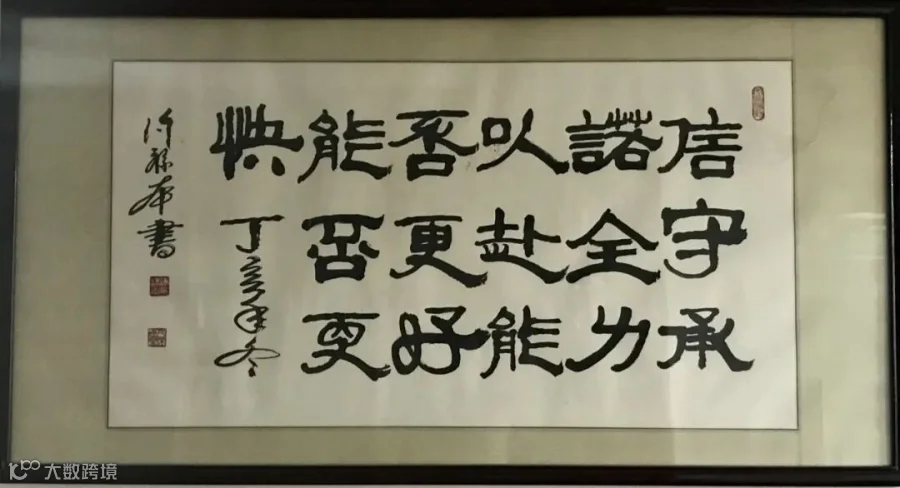 信守承
諾全力
以赴能
否更好
能否更
快
丁亥年冬
许
本書
大数跨境